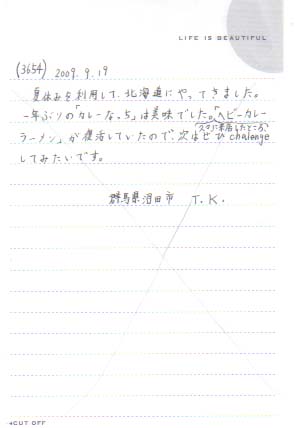 LIFE IS BEAUTIFUL
(3654) 2009.9.19
夏休みを利用して、北海道にやってきました。
一年ぶりの「カレーなっち」は美味でした。「ヘビーカレー
ラーメン」が復活していたので、次はぜひchalenge
してみたいです。
群馬県沼田市 T.K.
CUT OFF